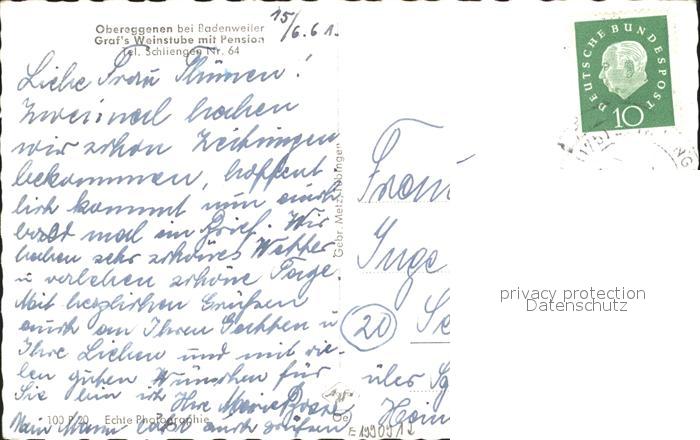 Obereggenen bei Badenweiler
Graf's Weinstube mit Pension
Tel. Schliengen Nr. 64
15/6.61.
Liebe Frau Thümen!
Zweimal haben
wir schon Zeitungen
bekommen, hoffent
lich kommt nun auch
bald mal ein Brief. Wir
haben sehr schönes Wetter
u verleben schöne Tage.
Mit herzlichen Grüßen
auch an Ihren Gatten u
Ihre Lieben und mit vie-
len guten Wünschen für
Sie bin ich Ihre
Mein Mann läßt auch grüßen
100 P 20 Echte Photographie
Gebr. Metz, Tübingen
DEUTSCHE BUNDESPOST
10
Frau
Inge
20
über
privacy protection
Datenschutz